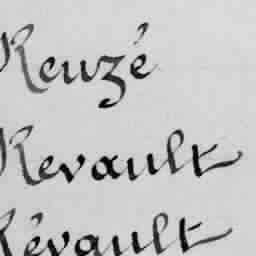 Reuzé
Revault
Révault